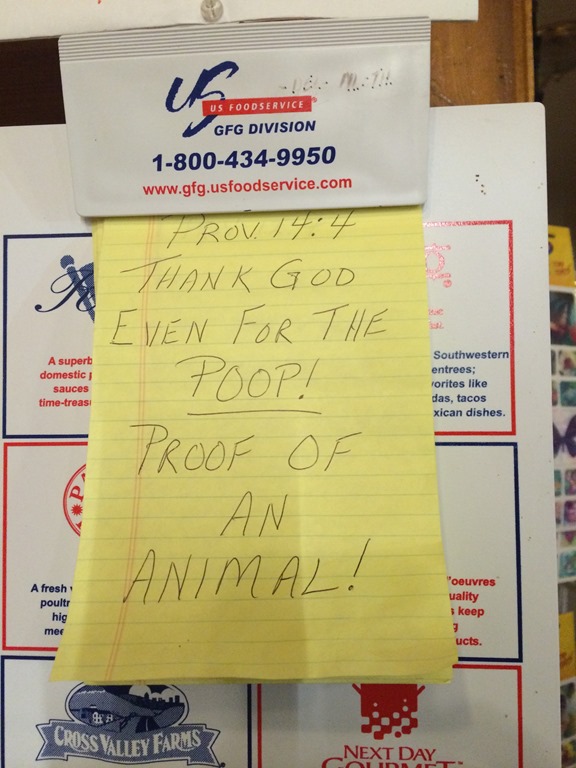 US
US FOODSERVICE
GFG DIVISION
1-800-434-9950
www.gfg.usfoodservice.com
PROV. 14:4
THANK GOD
EVEN FOR THE
POOP!
PROOF OF
AN
ANIMAL!
A superb
domestic
sauces
time-treas
Southwestern
entrees;
vorites like
das, tacos
xican dishes.
A fresh
poultr
hig
mee
'oeuvres
uality
s keep
g
ucts.
CROSS VALLEY FARMS
NEXT DAY
GOURMET